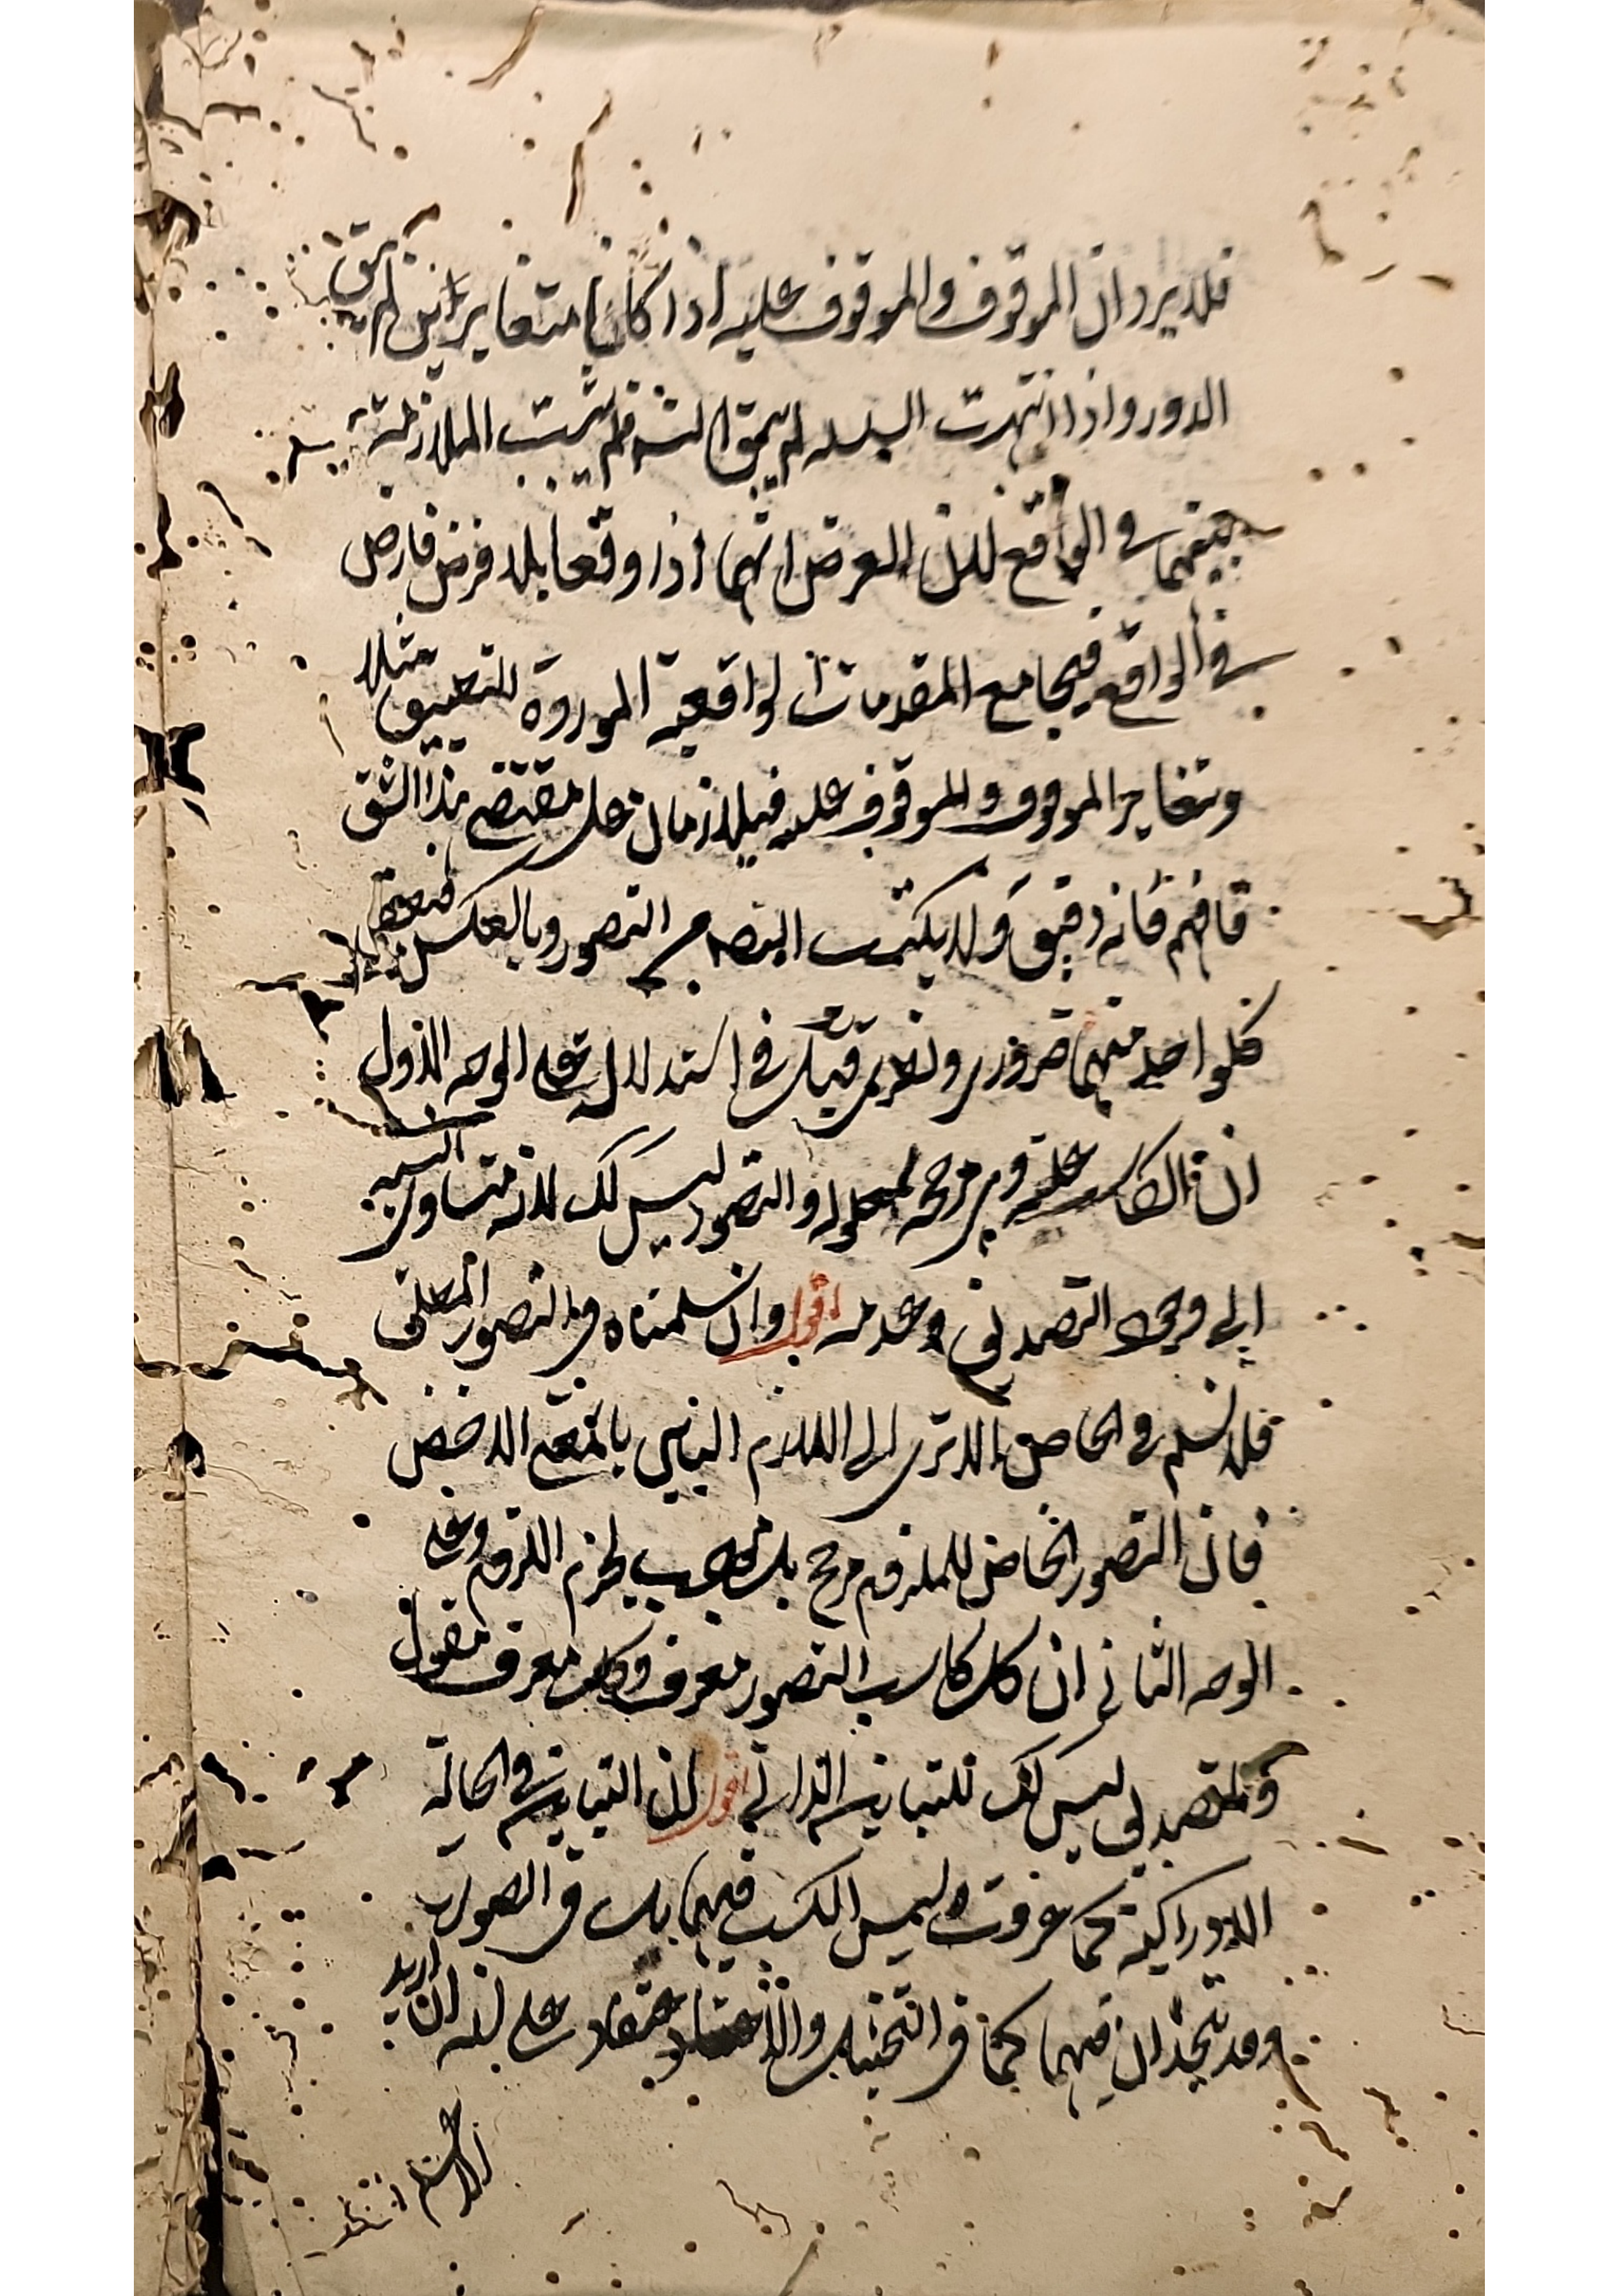 فلا يرد ان الموقوف والموقوف عليه اذا كانا متغايرين لم يبق
الدور واذا انتهت السلسله لم يبق التسـ فلم يثبت الملازمة
بينهما في الواقع لان الغرض انهما اذا وقعا بلا فرض فارض
في الواقع فيجامع المقدمات الواقعية الموردة للتطبيق مثلا
وتغاير الموقوف والموقوف عليه فيلازمان على مقتضى هذا الشق
فافهم فانه دقيق ولا يكتسب التصديق من التصور وبالعكس فبعض
كل واحد منهما ضروري ونظري قيل في استدلال على الوجه الاول
ان الكاسب علة وهي مرجحة لمعلوله والتصور ليس كك لانه متساوي النسبة
الى وجود التصديق وعدمه اقول وان سلمناه في التصور المطلق
فلا نسلم في الخاص الا ترى الى اللازم البين بالمعنى الاخص
فان التصور الخاص للملزوم مرجح بل موجب لجزم اللزوم وعلى
الوجه الثاني ان كل كاسب التصور معرف وكل معرف مقول
والتصديق ليس كك للتباين الذاتي اقول لان التباين في الحالة
الادراكية كما عرفت وليس الكسب فيهما بل في الصورة
وقد تتحدان فيهما كما في التخييل والاعتقاد على انه ان اريد